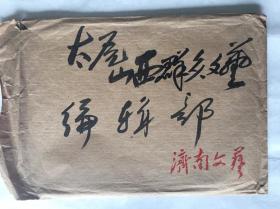 太原
山西群众文艺
编辑部
济南文艺